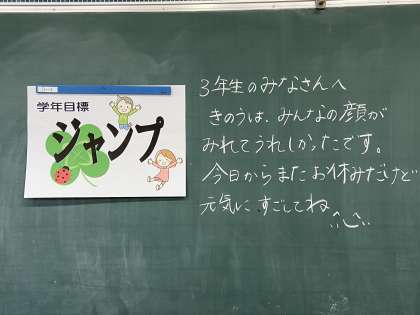 学年目標
ジャンプ
3年生のみなさんへ
きのうは、みんなの顔が
みれてうれしかったです。
今日からまたお休みだけど
元気に すごしてね